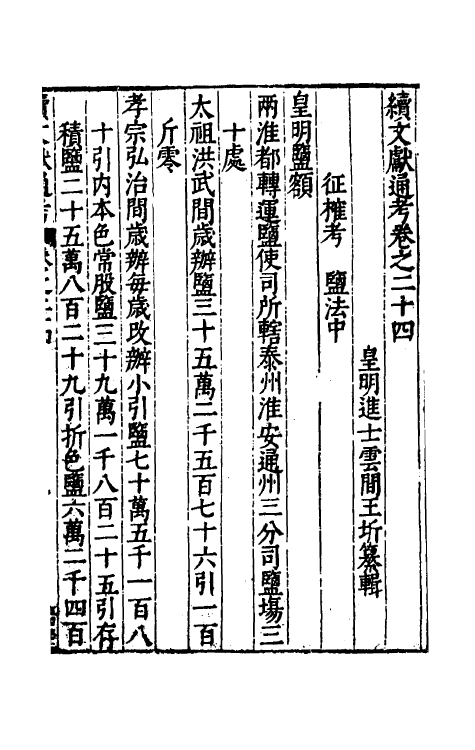 續文獻通考卷之二十四
皇明進士雲間王圻纂輯
征榷考　鹽法中
皇明鹽額
兩淮都轉運鹽使司所轄泰州淮安通州三分司鹽塲三
十處
太祖洪武間歲辦鹽三十五萬二千五百七十六引一百
斤零
孝宗弘治間歲辦每歲改辦小引鹽七十萬五千一百八
十引内本色常股鹽三十九萬一千八百二十五引存
積鹽二十五萬八百二十九引折色鹽六萬二千四百
續文獻通考 卷之二十四